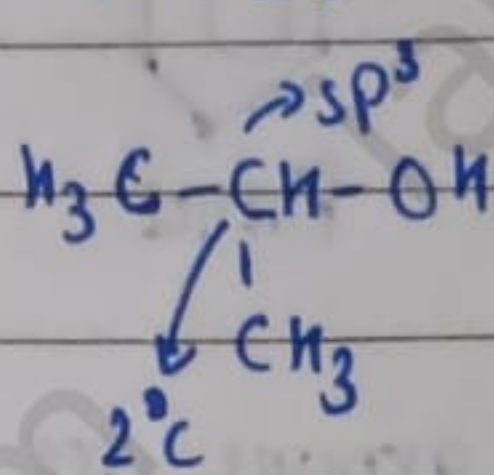 sp³
H₃C-CH-OH
CH₃
2°C